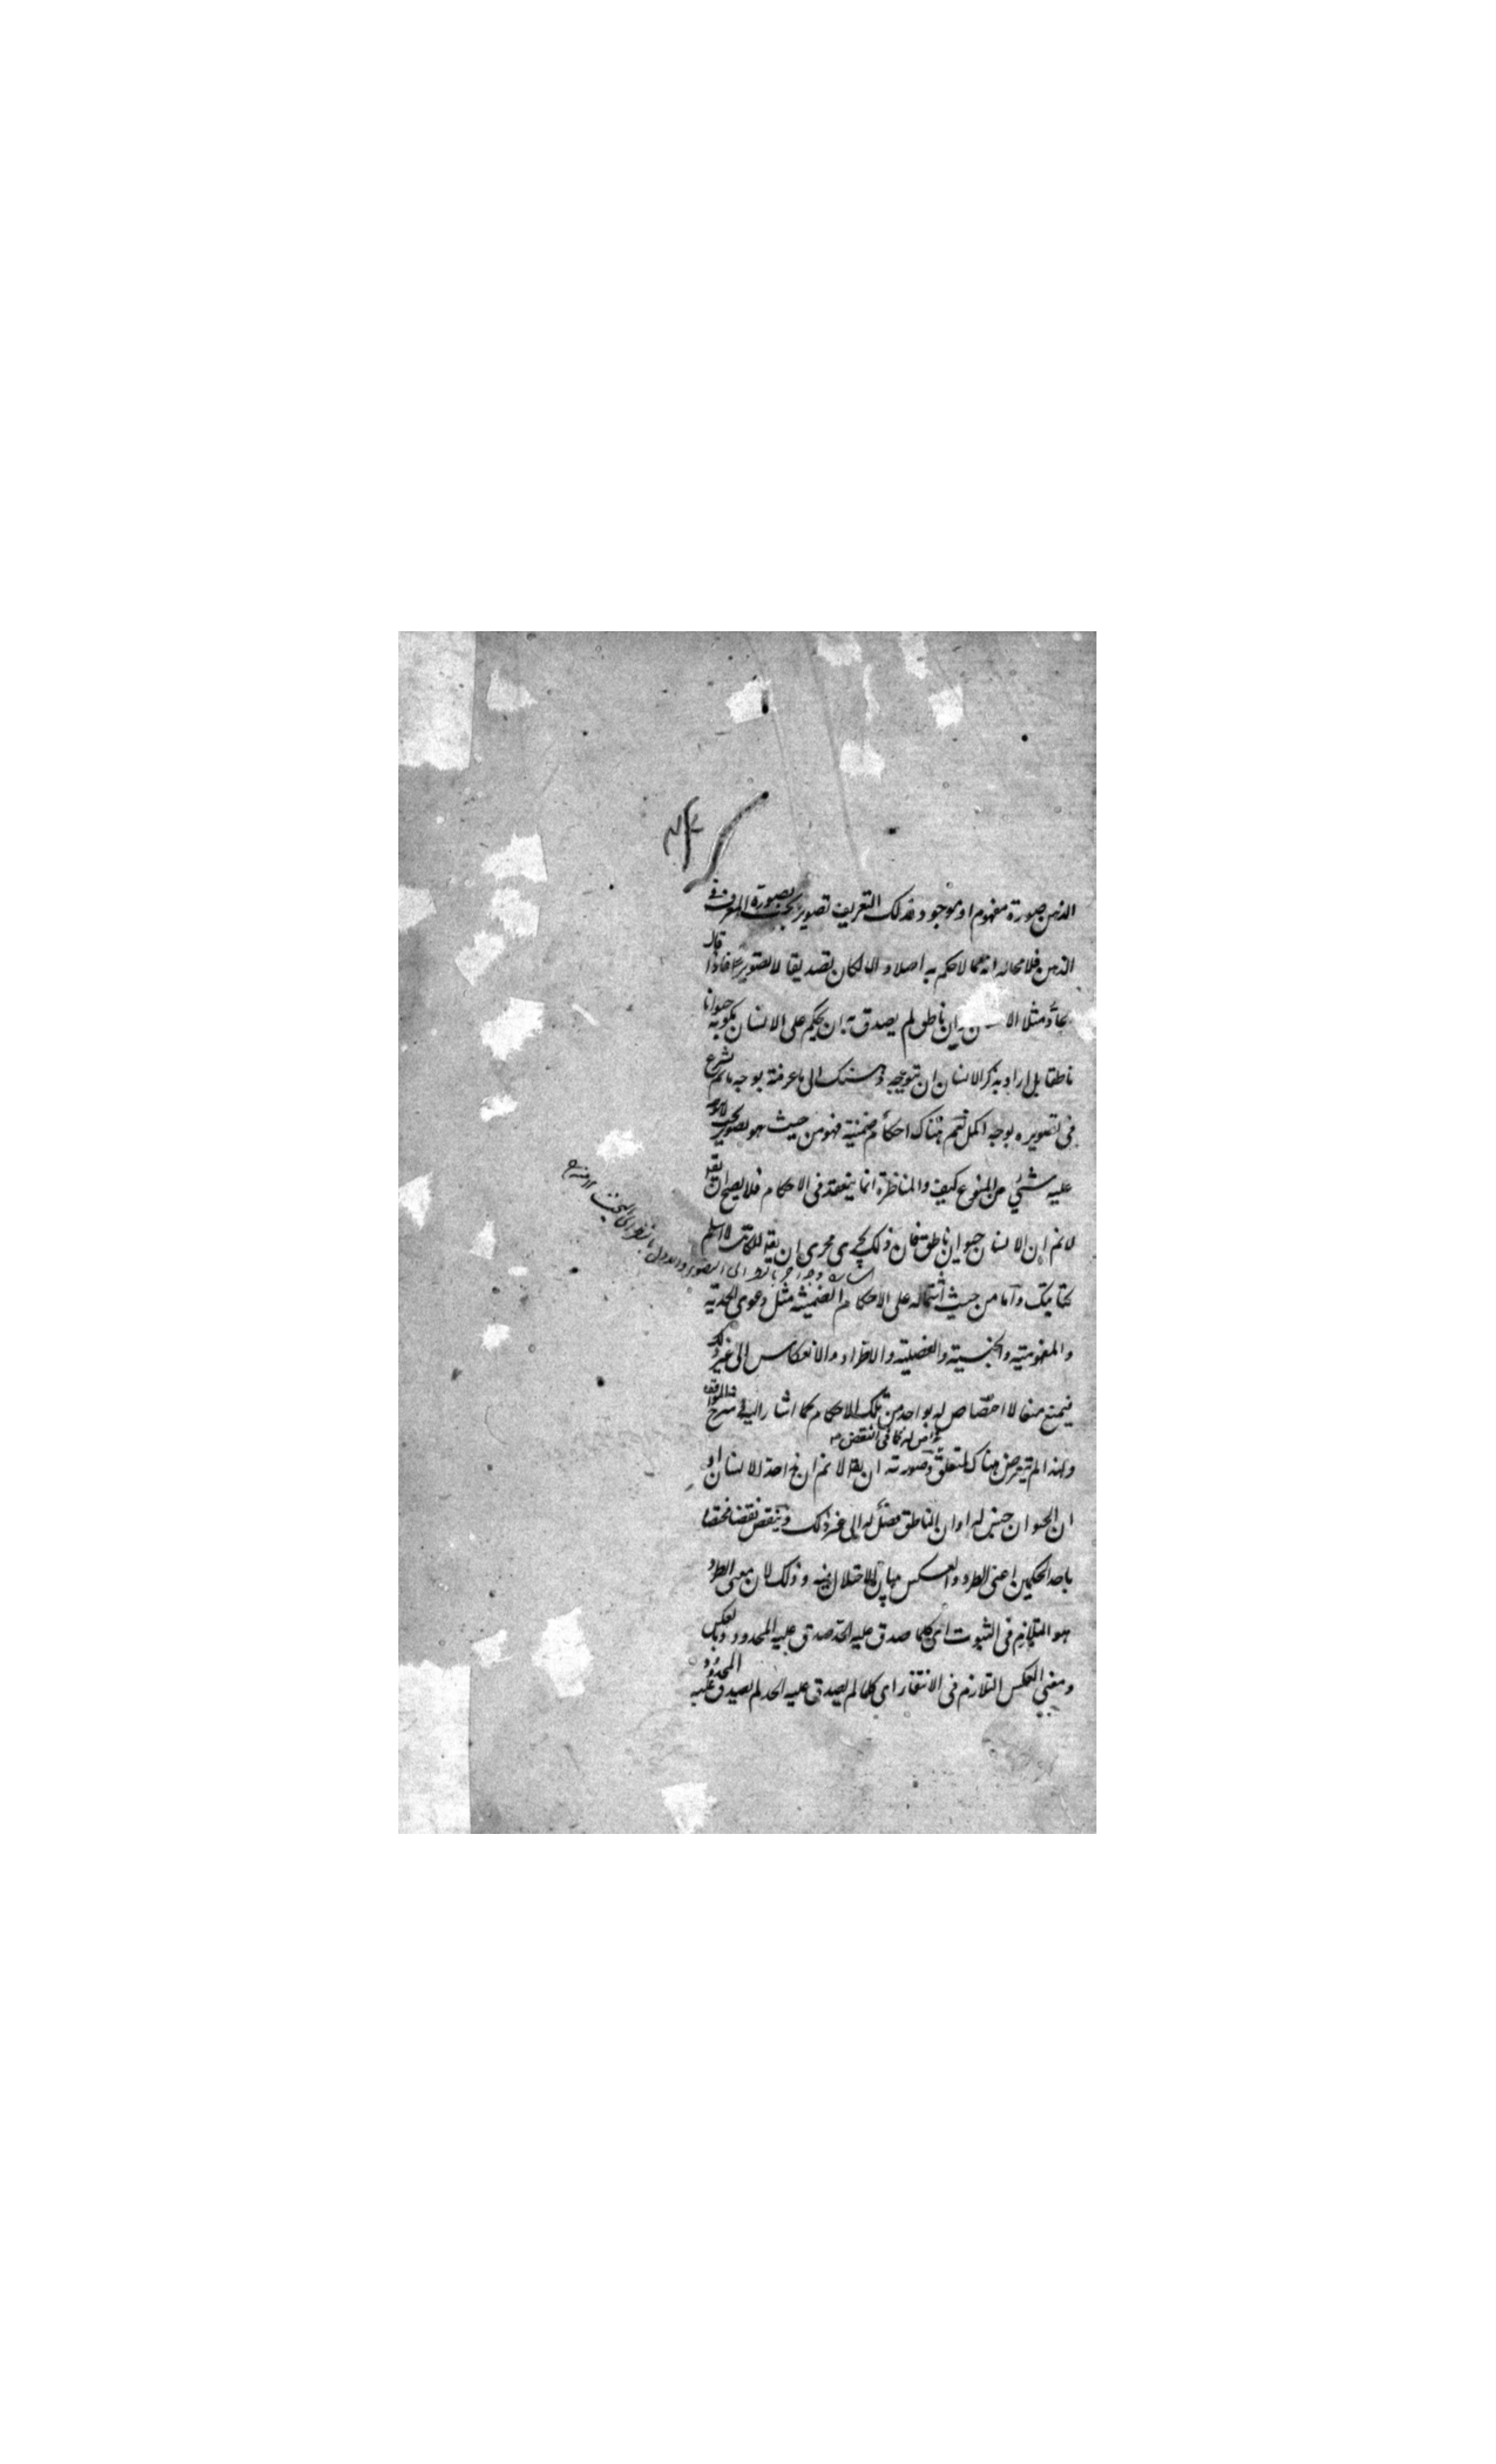 الذهن صورة مفهوم او موجود فذلك التعريف تصوير بحت بصورة المعرف فى
الذهن فلا محالة انه مما لا حكم به اصلا و الا لكان تصديقا لا تصويرا فاذا قال
مثلا الانسان حيوان ناطق لم يصدق به ان يحكم على الانسان بكونه حيوانا
ناطقا بل اراد بذكر الانسان ان يتوجه ذهنك الى ما عرفته بوجه ما ثم شرع
فى تصويره بوجه اكمل نعم هناك احكام ضمنية فهو من حيث هو تصوير بحت لا يرد
عليه شئ من المنوع كيف والمناظرة انما ينعقد فى الاحكام فلا يصح ان يقه
لا نم ان الانسان حيوان ناطق فان ذلك يجرى مجرى ان يقه للكاتب لا اسلم
كتابتك واما من حيث اشتماله على الاحكام الضمنية مثل دعوى الحدية
والمفهومية والجنسية والفصلية والاطراد والانعكاس الى غير ذلك
فيمنع منعا لا اختصاص له بواحد من تلك الاحكام كما اشار اليه فى شرح المواقف
ولهذا لم يتعرض هناك وصورته ان يقه لا نم ان هذا حد الانسان او
ان الحيوان جنس له او ان الناطق فصل له الى غير ذلك وينقض نقضا مختصا
باحد الحكمين اعنى الطرد والعكس ببيان الاختلال فيه وذلك لان معنى الطرد
هو التلازم فى الثبوت اى كلما صدق عليه الحد صدق عليه المحدود وبالعكس
ومعنى العكس التلازم فى الانتفاء اى كلما لم يصدق عليه الحد لم يصدق عليه المحدود